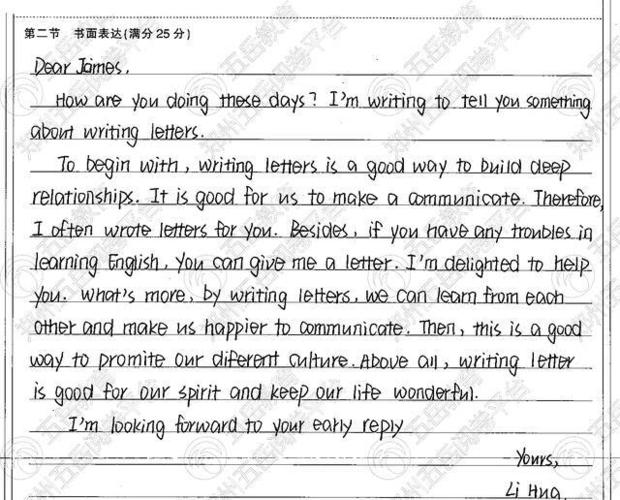 第二节 书面表达(满分25分)
Dear James,
How are you doing these days? I'm writing to tell you something
about writing letters.
To begin with, writing letters is a good way to build deep
relationships. It is good for us to make a communicate. Therefore,
I often wrote letters for you. Besides, if you have any troubles in
learning English, you can give me a letter. I'm delighted to help
you. What's more, by writing letters, we can learn from each
other and make us happier to communicate. Then, this is a good
way to promite our diferent culture. Above all, writing letter
is good for our spirit and keep our life wonderful.
I'm looking forward to your early reply
Yours,
Li Hua.